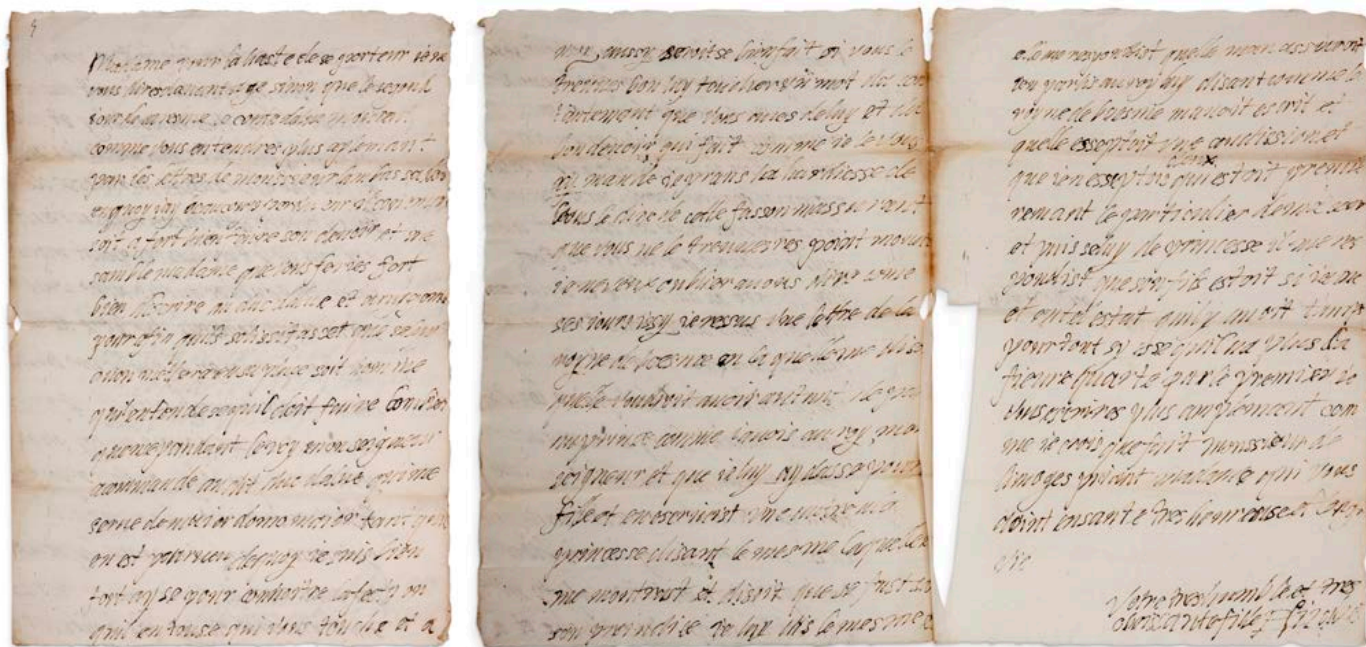 Madame pour la haste de se porteur ie ne
vous dires davantage sinon que le segond
jour de caresme le conte dalve
comme vous entendres plus aplemant
par les lettres de monsieur lanbasadeur
en quoy iay beaucoup
soit a fort bien faire son devoir et me
samble madame que vous feries fort
bien descrire au duc dalve et
pour afin quils solisitasset que
a mon soit nomme
qui entande se quil doit faire
que ce pandant le roy monseigneur
a commande au dit duc dalve qui me
serve de tant quon
en est pourveu dequoy ie suis bien
fort ayse pour connoitre lafection
quil en touse qui vous touche et a
moy aussy seroit se bien fait si vous le
treuves bon luy toucher un mot du con
tantemant que vous aves de luy et du
bon devoir qui fait comme ie le vous
ay mande ie prans la hardiesse de
vous le dire de ceste fasson massurant
que vous ne le treuveres point mauves
ie ne veux oublier a vous dire come
ses jours issy ie ressus une lettre de la
royne de boesme en la quelle me disoit
quelle voudroit avoir
un prince comme iavois au roy mon
seigneur et que ie luy aydasse pour sa
fille et en escrivist une aussy a la
princesse disant le mesme laquelle
me montrat et disoit que se fust
son ie luy dis le mesme
elle me respondist quelle man assuroit
ien parles au roy luy disant comme la
royne de boesme mavoit escrit et
quelle esseptoit une condission et
que ien esseptois deux qui estoit premie
remant le particulier de ma seur
et puis seluy de princesse il me res
pondist que son fils estoit si ieune
et en tel estat quil y avoit tamps
pour tout sy esse quil na plus la
fievre quarte par le premier ie
vous escrires plus amplemant com
me ie crois que fait monssieur de
limoges priant madame qui vous
doint en sante tres heureuse et longue
vie
Votre tres humble et tres
obeissante fille